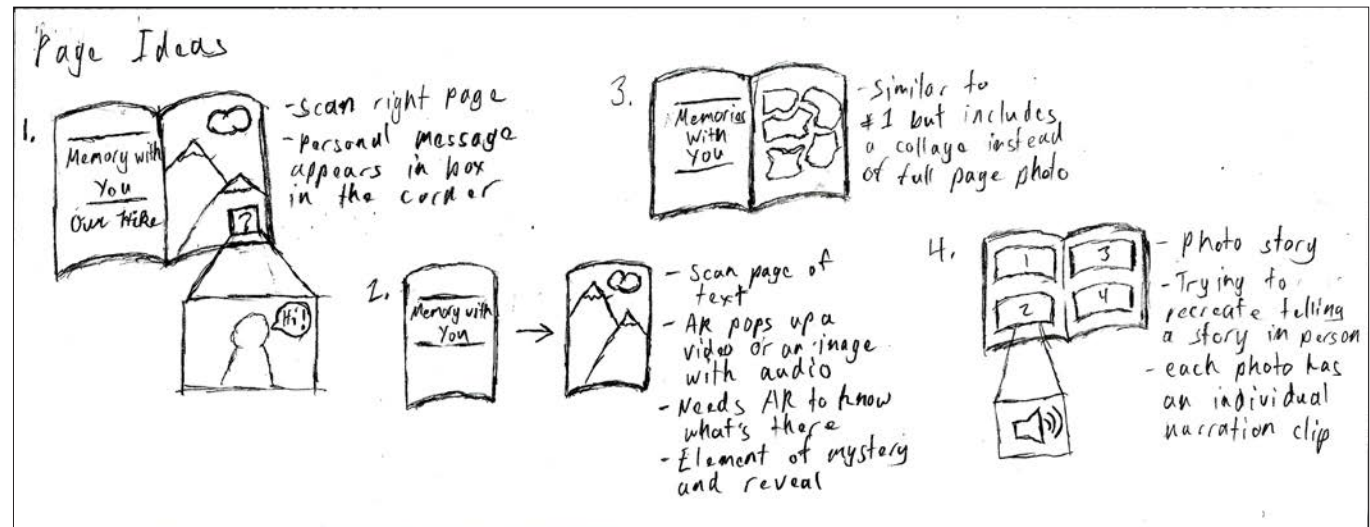 Page Ideas
1.
Memory with
You
Our Hike
?
Hi!
- Scan right page
- Personal message
appears in box
in the corner
2.
Memory with
You
- Scan page of
text
- AR pops up a
video or an image
with audio
- Needs AR to know
what's there
- Element of mystery
and reveal
3.
Memories
with
You
- Similar to
#1 but includes
a collage instead
of full page photo
4.
1
2
3
4
- Photo story
- Trying to
recreate telling
a story in person
- each photo has
an individual
narration clip